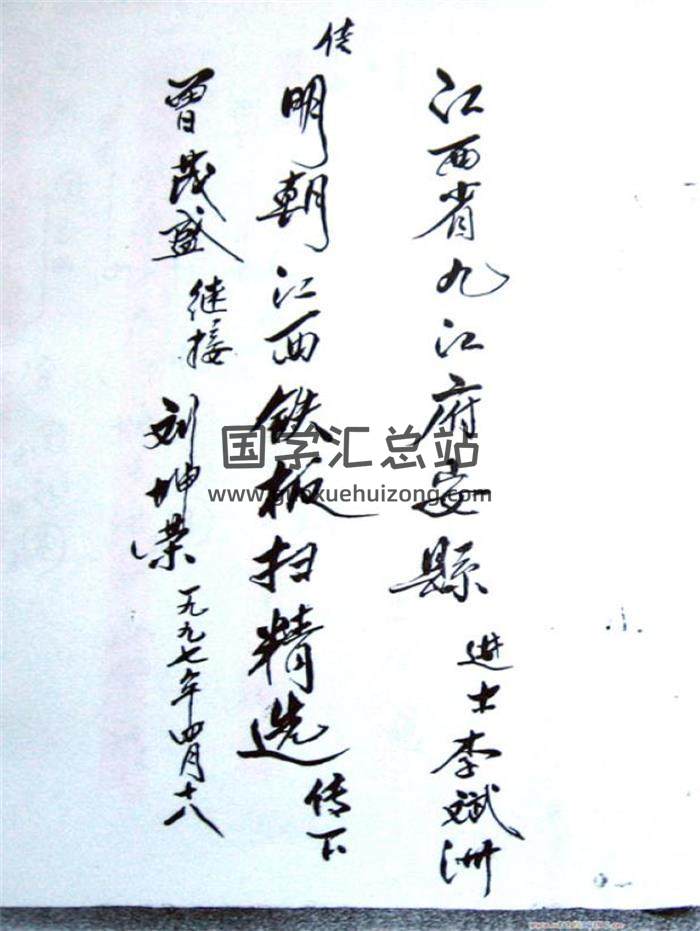 江西省九江府安縣 进士李斌洲
传
明朝江西铁板扫精选 传下
曾茂盛 继接 刘坤荣 一九九七年四月十八
国学汇总站
www.guoxuehuizong.com